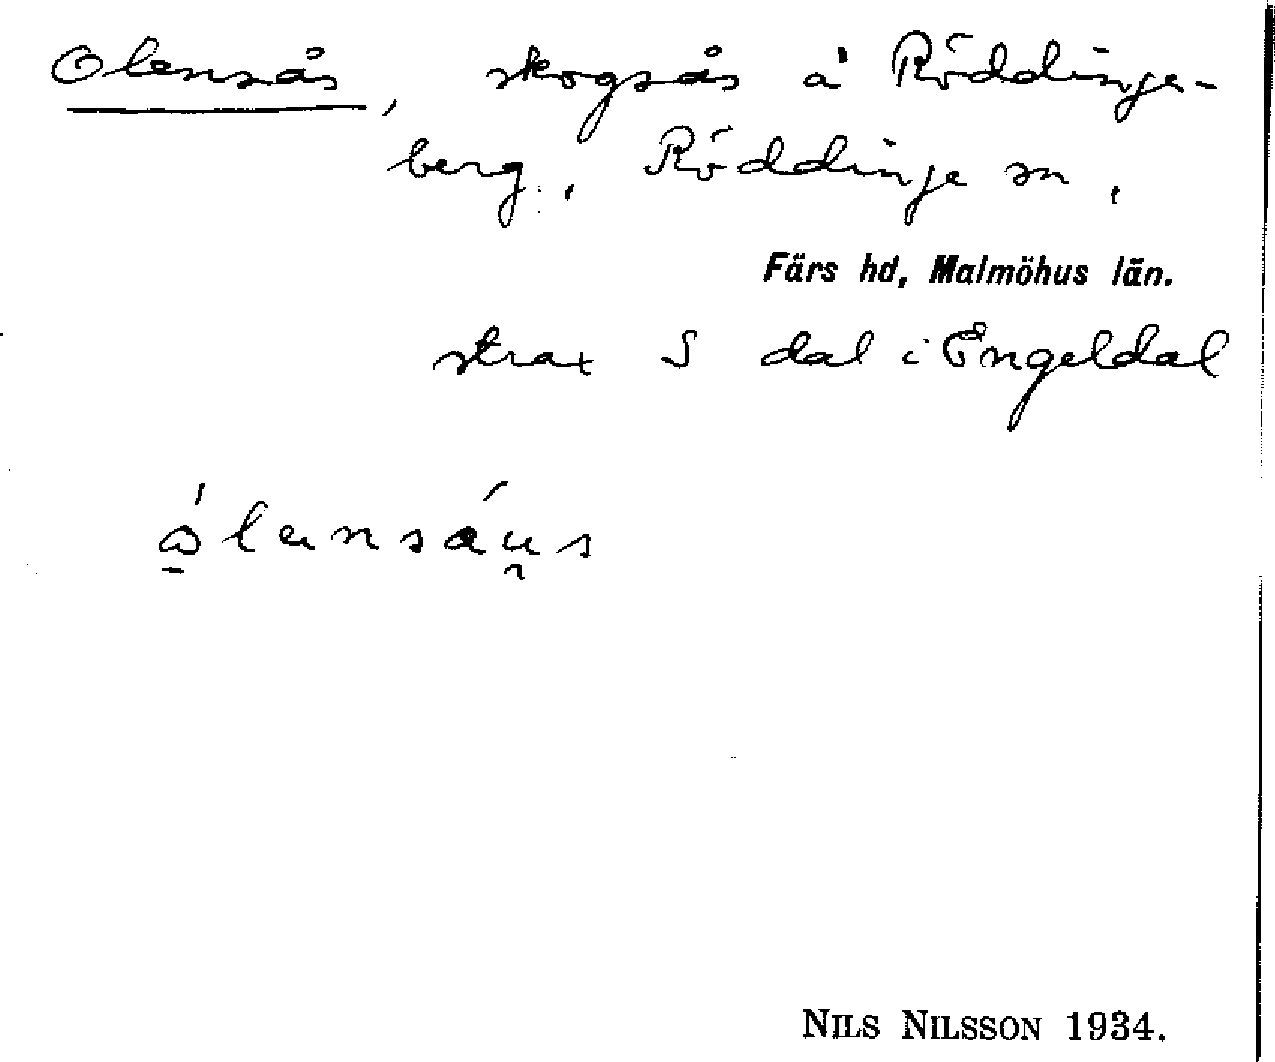 Olensås, skogsås å Röddinge-
berg, Röddinge sn,
Färs hd, Malmöhus län.
strax S dal i Engeldal
NILS NILSSON 1934.